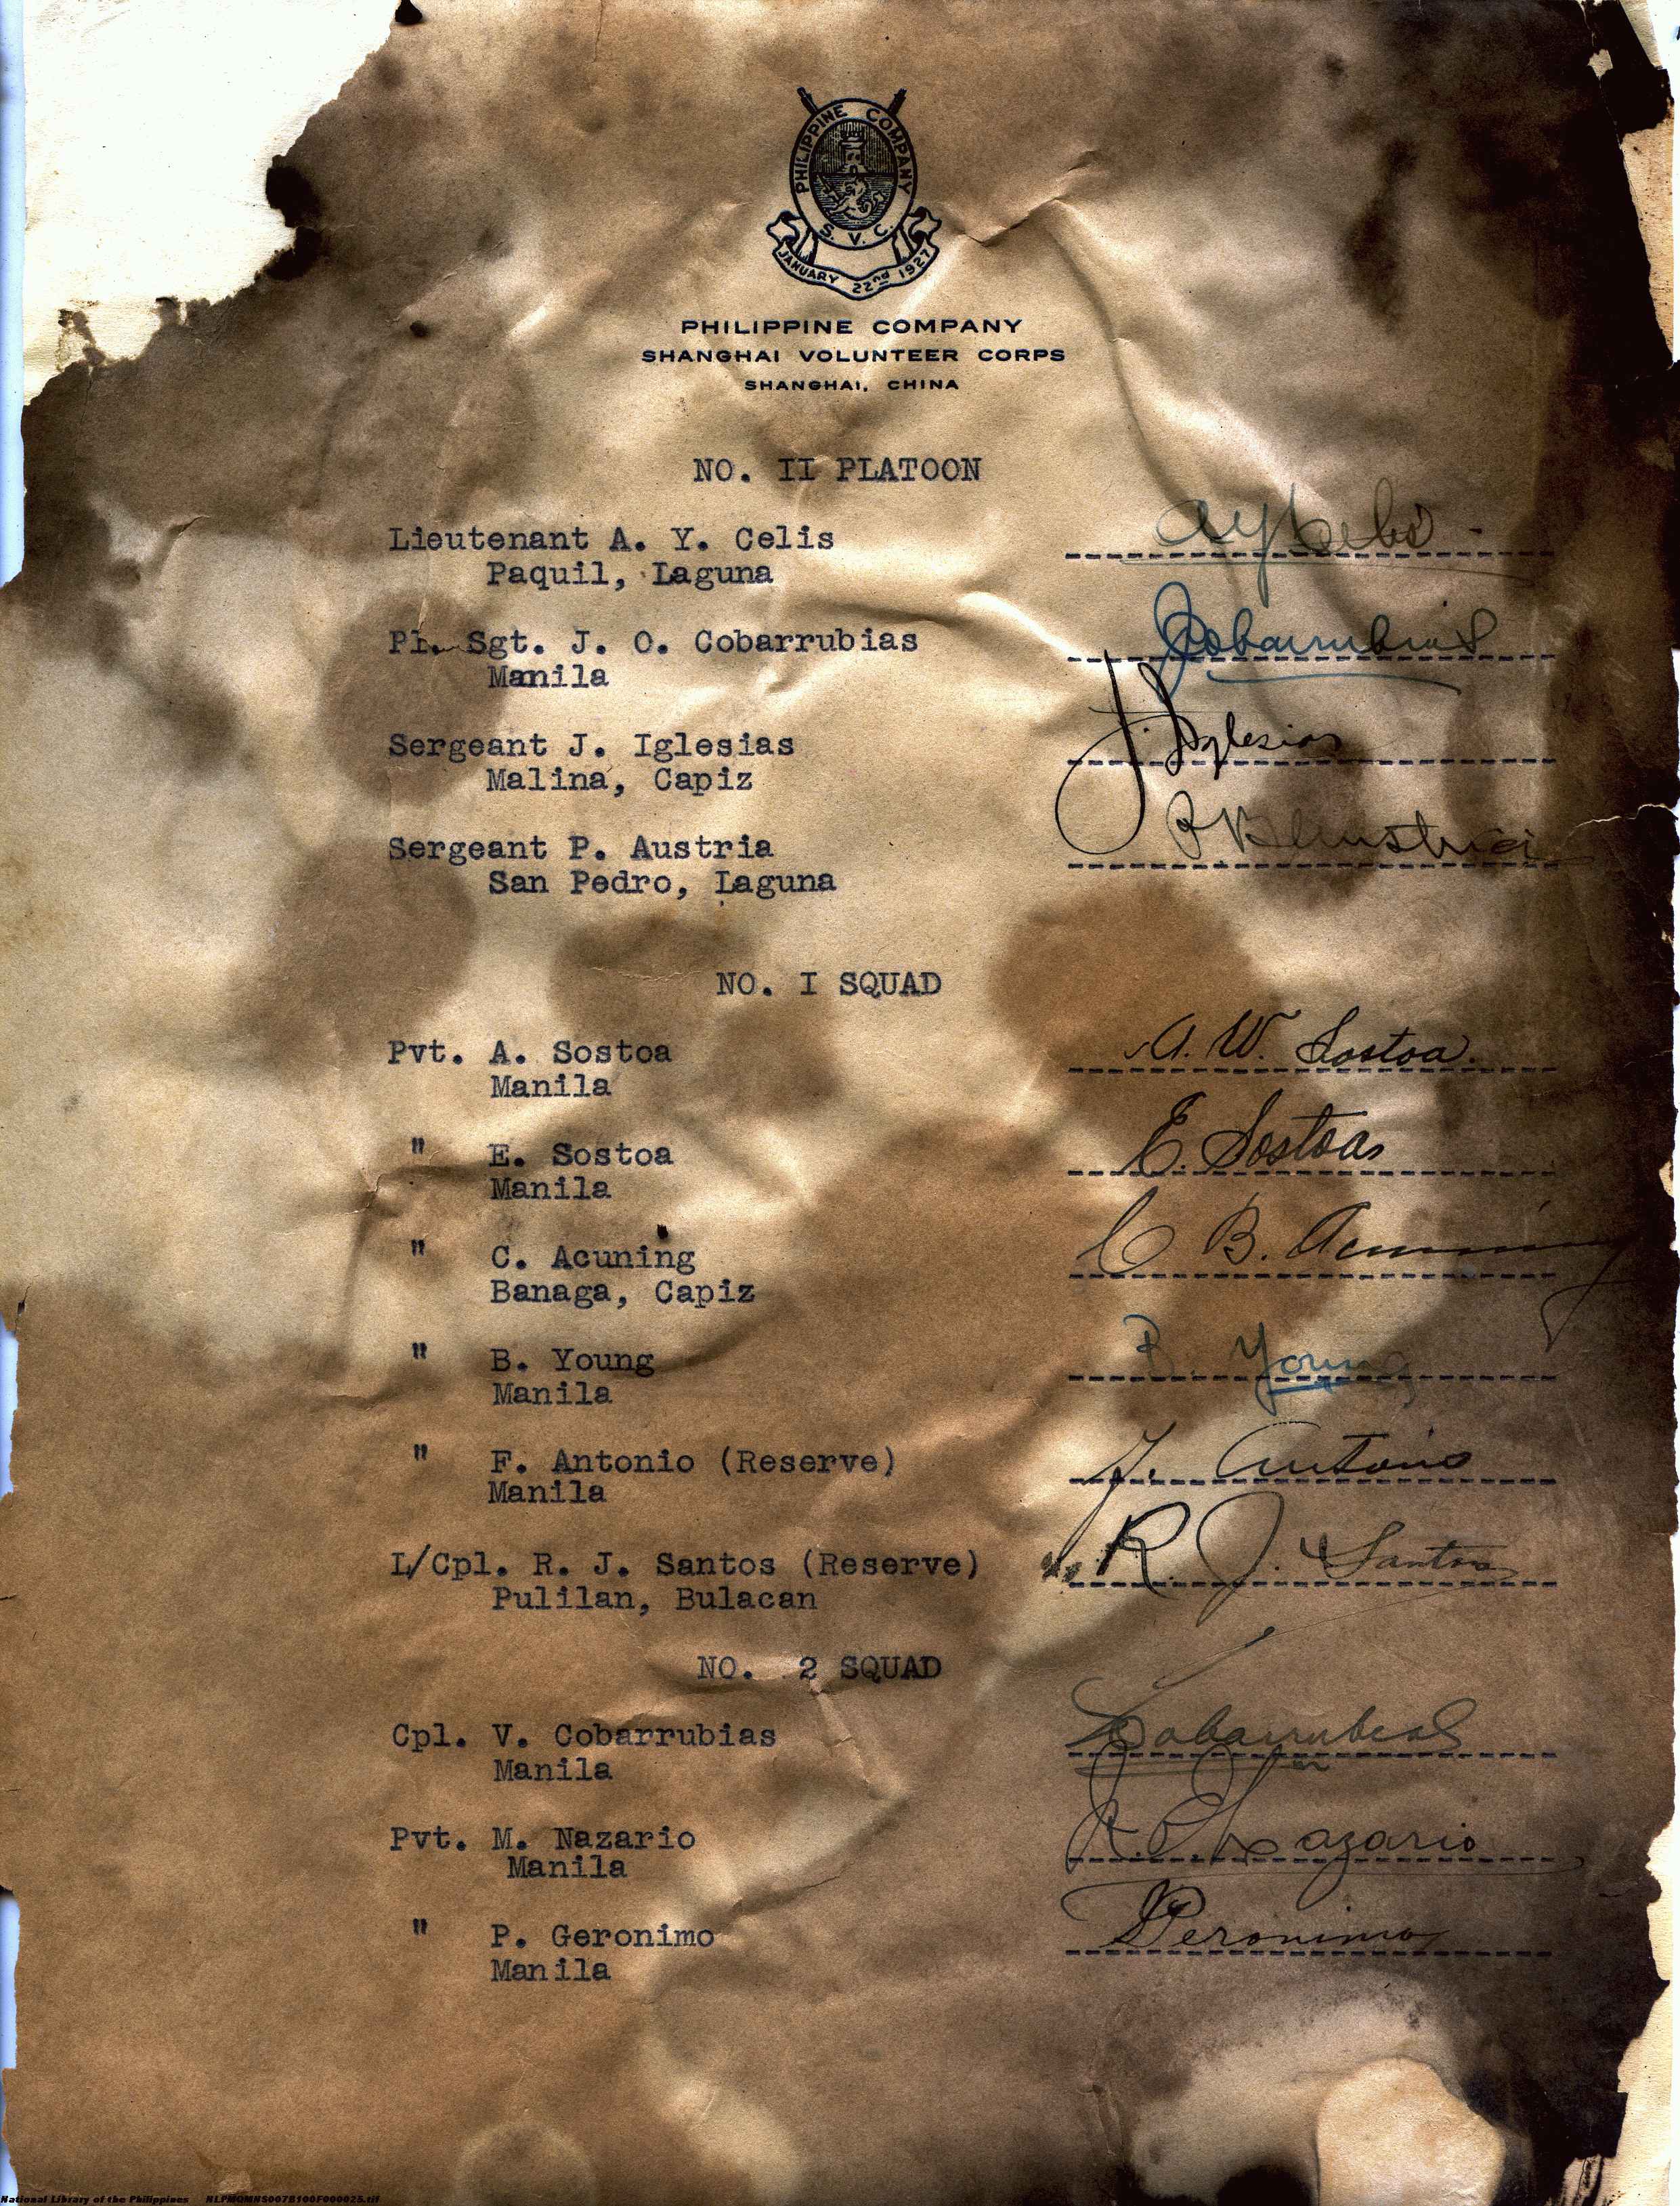 PHILIPPINE COMPANY
S. V. C.
JANUARY 22nd 1927
PHILIPPINE COMPANY
SHANGHAI VOLUNTEER CORPS
SHANGHAI, CHINA
NO. II PLATOON
Lieutenant A. Y. Celis AYCelis
Paquil, Laguna
Pl. Sgt. J. O. Cobarrubias JCobarrubias
Manila
Sergeant J. Iglesias J. Iglesias
Malina, Capiz
Sergeant P. Austria
San Pedro, Laguna
NO. I SQUAD
Pvt. A. Sostoa A. W. Sostoa.
Manila
" E. Sostoa E. Sostoa
Manila
" C. Acuning C B. Acuning
Banaga, Capiz
" B. Young B. Young
Manila
" F. Antonio (Reserve) F. Antonio
Manila
L/Cpl. R. J. Santos (Reserve) R. J. Santos
Pulilan, Bulacan
NO. 2 SQUAD
Cpl. V. Cobarrubias Cobarrubias
Manila
Pvt. M. Nazario Nazario
Manila
" P. Geronimo PGeronimo
Manila
National Library of the Philippines NLPMQMNS007B100F000025.tif